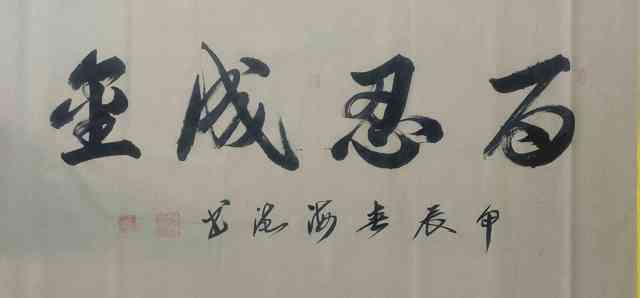 百忍成金
甲辰春海书